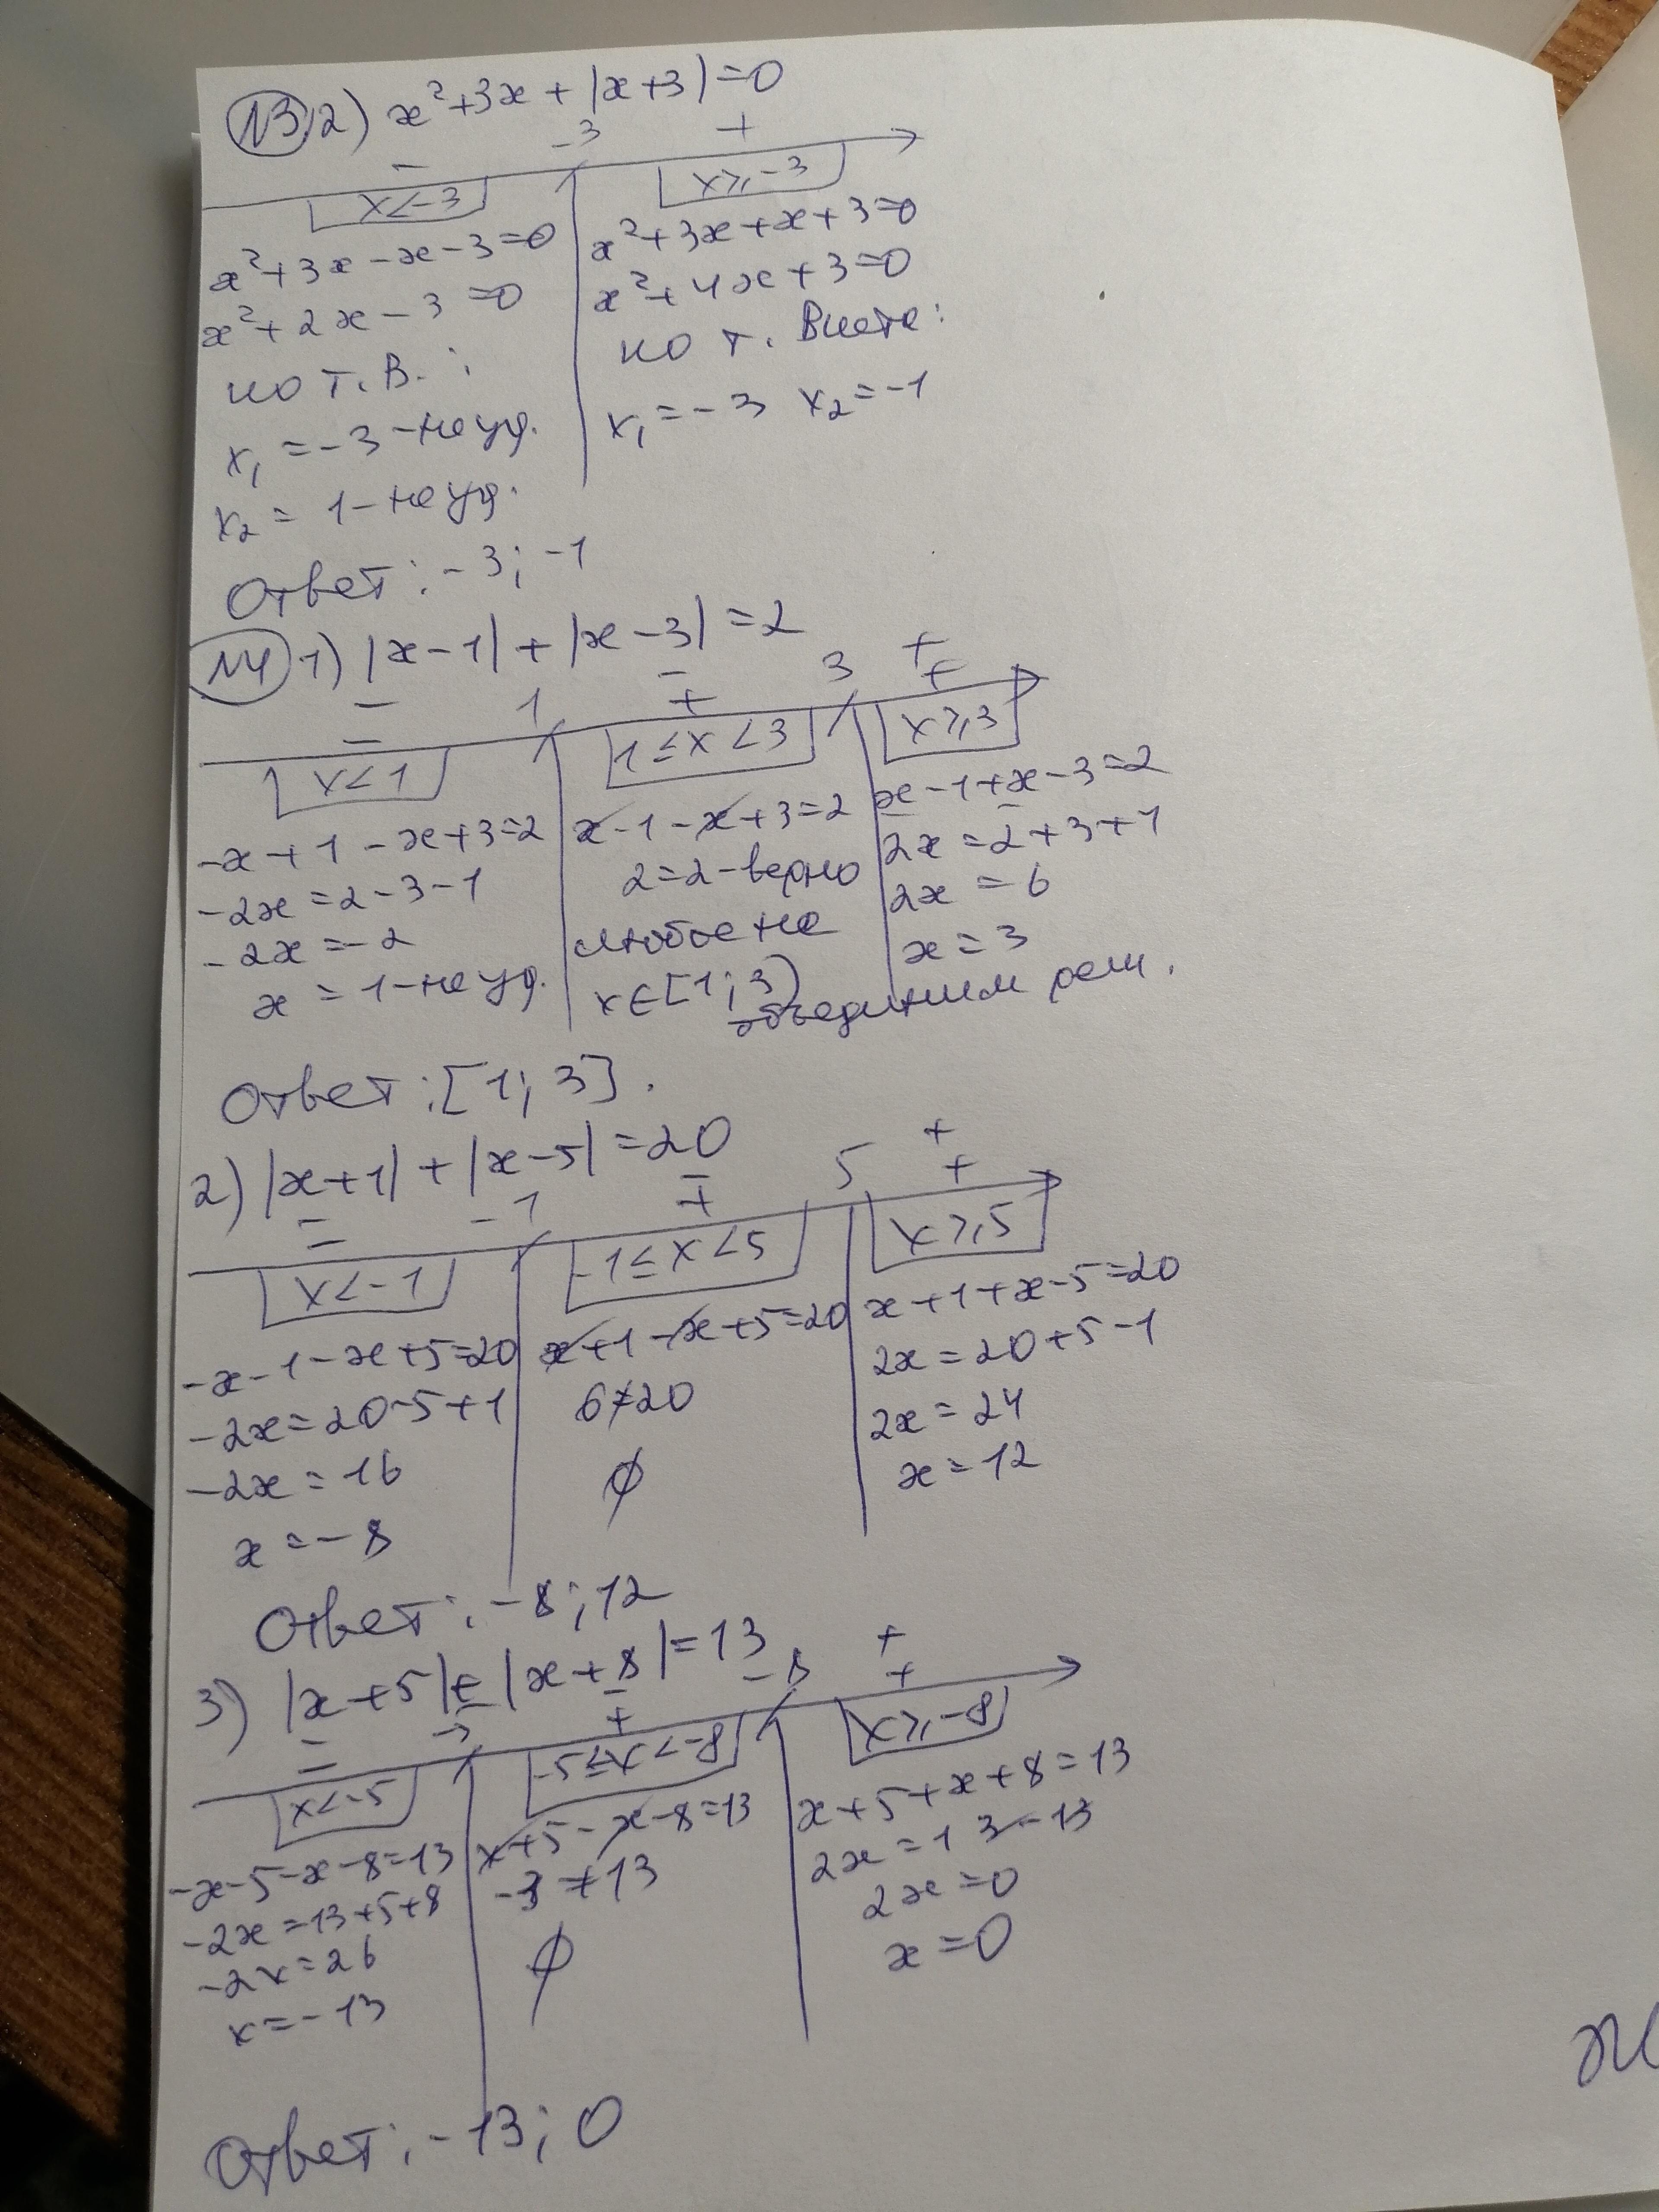 №3 2) x²+3x+|x+3|=0
- -3 +
x<-3 x≥-3
x²+3x-x-3=0 x²+3x+x+3=0
x²+2x-3=0 x²+4x+3=0
по т.В.: по т. Виета:
x₁=-3-не уд. x₁=-3 x₂=-1
x₂=1-не уд.
Ответ: -3; -1
№4 1) |x-1|+|x-3|=2
- 1 - 3 +
- + +
x<1 1≤x<3 x≥3
-x+1-x+3=2 x-1-x+3=2 x-1+x-3=2
-2x=2-3-1 2=2-верно 2x=2+3+1
-2x=-2 любое на 2x=6
x=1-не уд. x∈[1;3) x=3
объединим реш.
Ответ: [1; 3].
2) |x+1|+|x-5|=20
- -1 - 5 +
- + +
x<-1 -1≤x<5 x≥5
-x-1-x+5=20 x+1-x+5=20 x+1+x-5=20
-2x=20-5+1 6≠20 2x=20+5-1
-2x=16 ∅ 2x=24
x=-8 x=12
Ответ: -8; 12
3) |x+5|+|x+8|=13
- -5 - -8 +
- + +
x<-5 -5≤x<-8 x≥-8
-x-5-x-8=13 x+5-x-8=13 x+5+x+8=13
-2x=13+5+8 -3≠13 2x=13-13
-2x=26 ∅ 2x=0
x=-13 x=0
Ответ: -13; 0